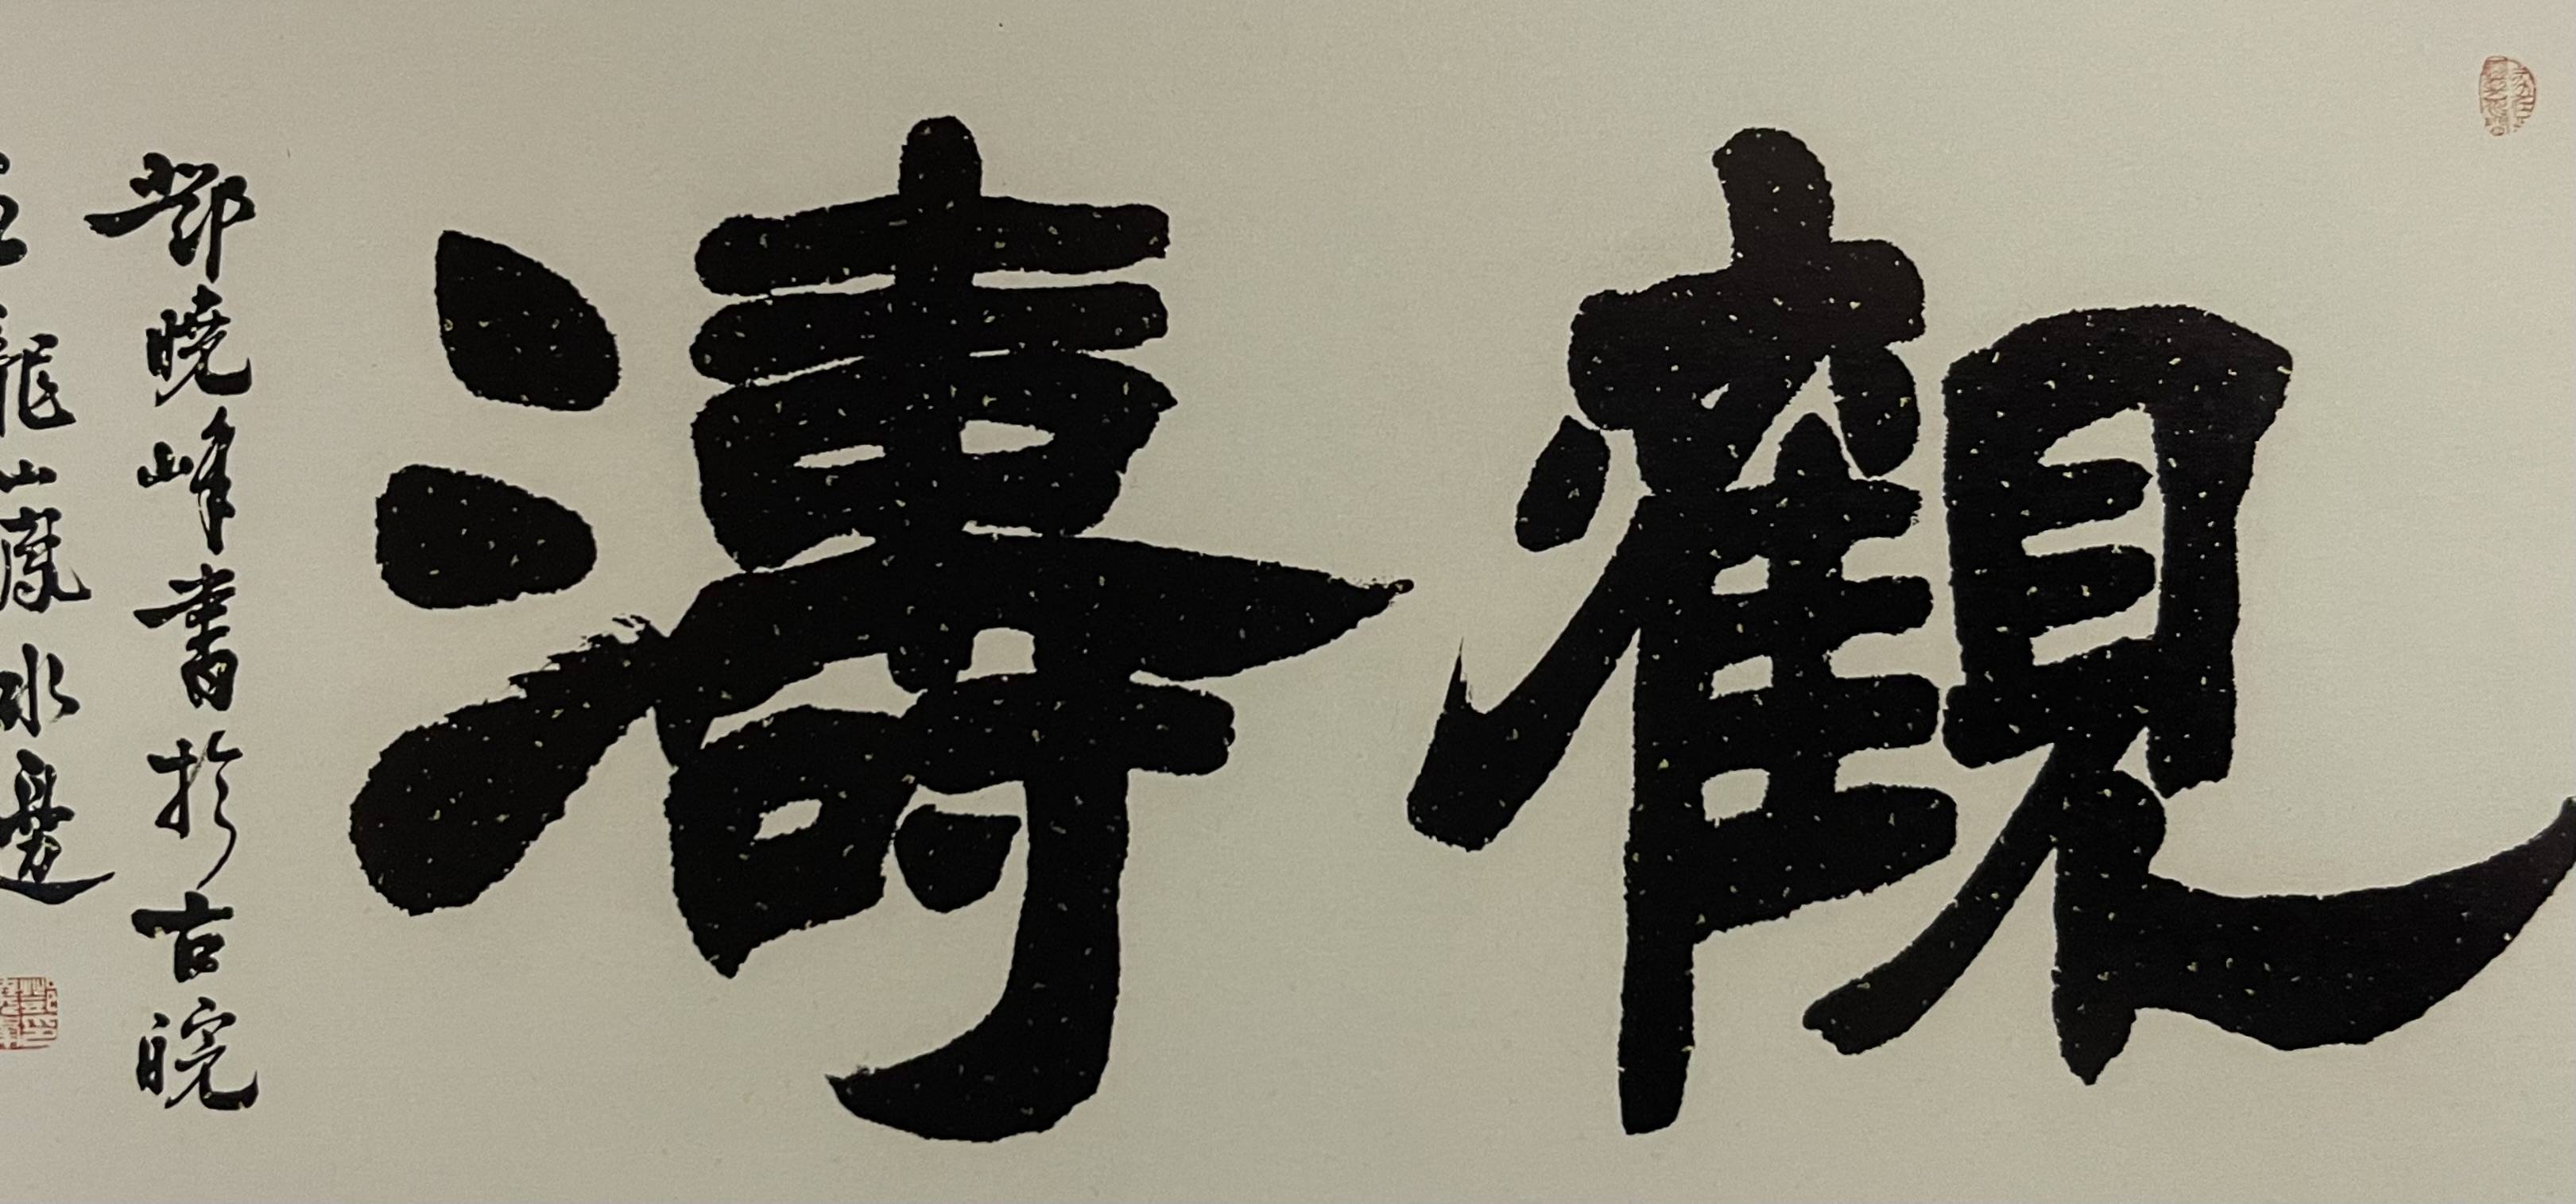 觀濤
鄧曉峰書於古皖
龍山鳳水邊